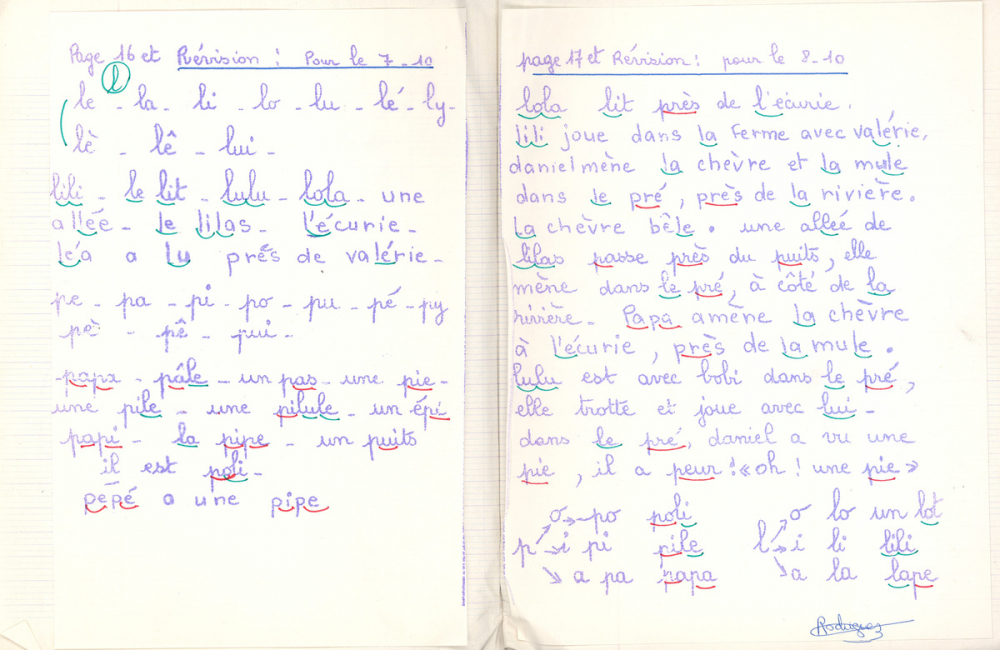 Page 16 et Révision : Pour le 7_10
l
le _ la _ li _ lo _ lu _ lé _ ly_
lè _ lê _ lui _
lili _ le lit _ lulu _ lola _ une
alléé _ le lilas _ l'écurie _
léa a lu prés de valérie _
pe _ pa _ pi _ po _ pu _ pé _ py
pè _ pê _ pui _
papa _ pâle _ un pas _ une pie _
une pile _ une pilule _ un épi
papi _ la pipe _ un puits
il est poli _
pépé a une pipe
page 17 et Révision : pour le 8_10
lola lit près de l'écurie .
lili joue dans la ferme avec valérie.
daniel mène la chèvre et la mule
dans le pré , près de la rivière .
La chèvre bêle . une alleé de
lilas passe près du puits, elle
mène dans le pré, à côté de la
rivière _ Papa amène la chèvre
à l'écurie , près de la mule .
lulu est avec bobi dans le pré,
elle trotte et joue avec lui _
dans le pré, daniel a vu une
pie , il a peur ! « oh ! une pie »
o po poli o lo un lot
p i pi pile l i li lili
a pa papa a la lape
Rodriguez